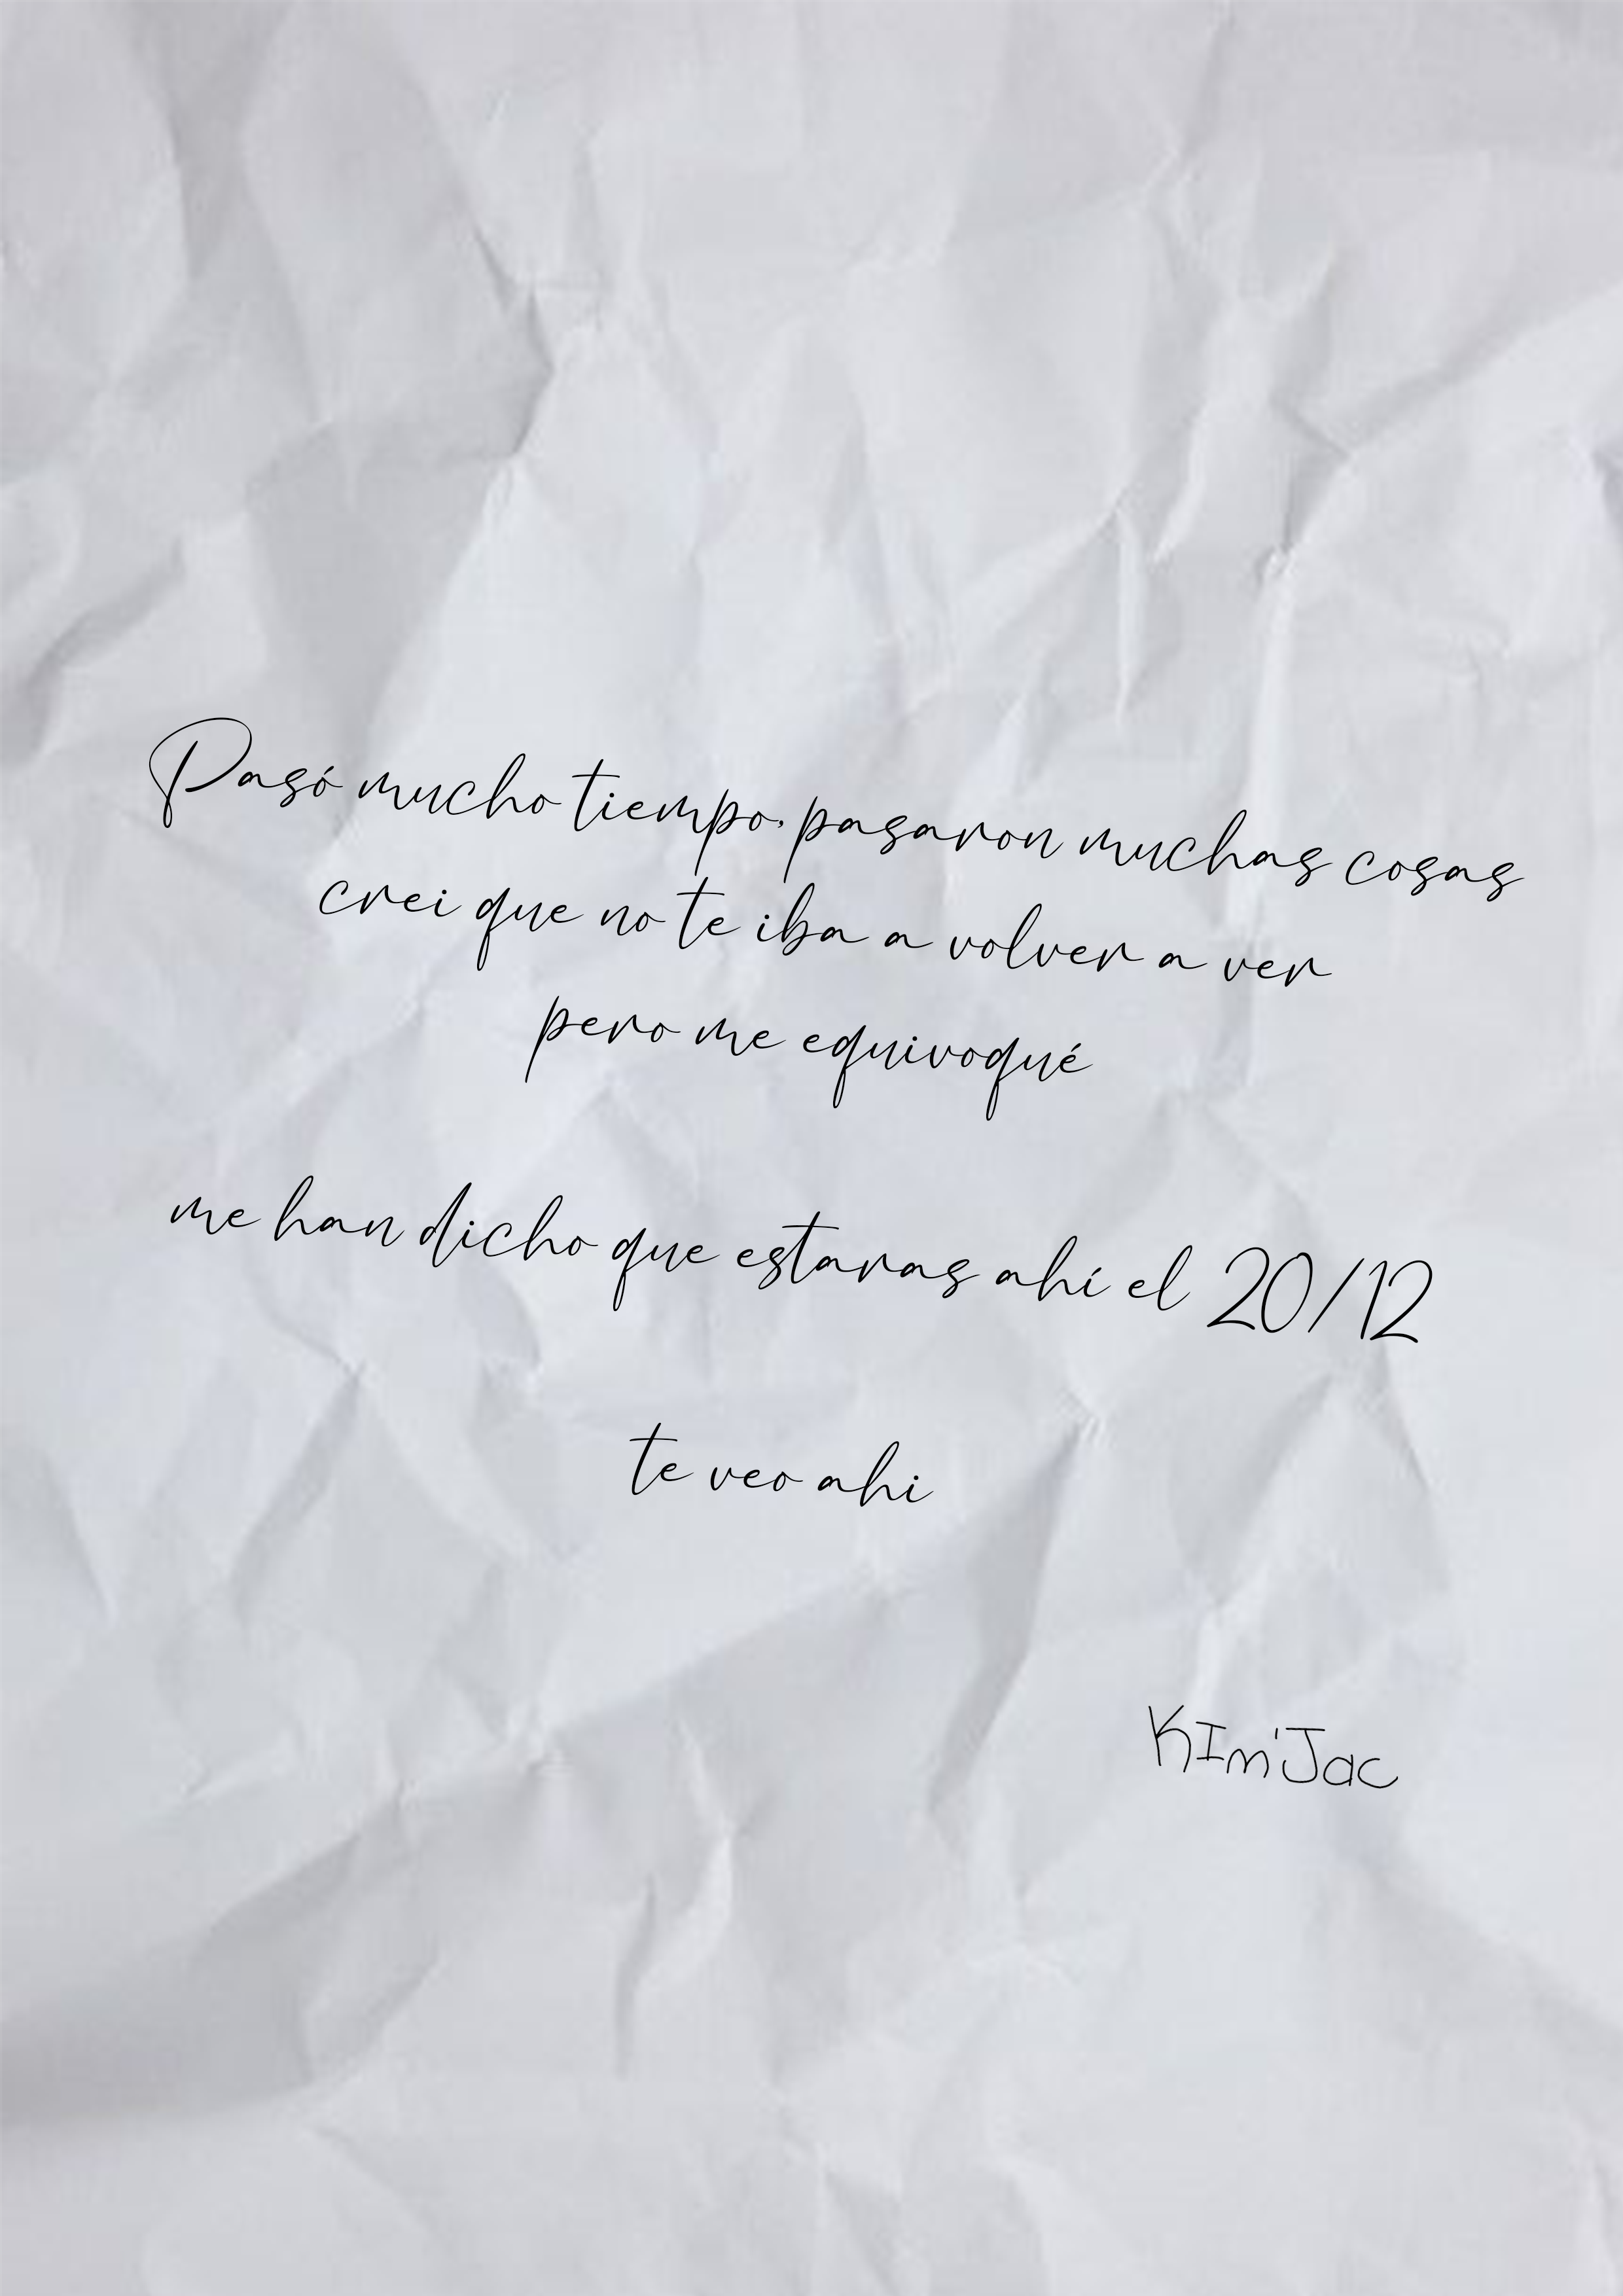 Pasó mucho tiempo, pasaron muchas cosas
crei que no te iba a volver a ver
pero me equivoqué
me han dicho que estaras ahí el 20/12
te veo ahi
KIm'Jac